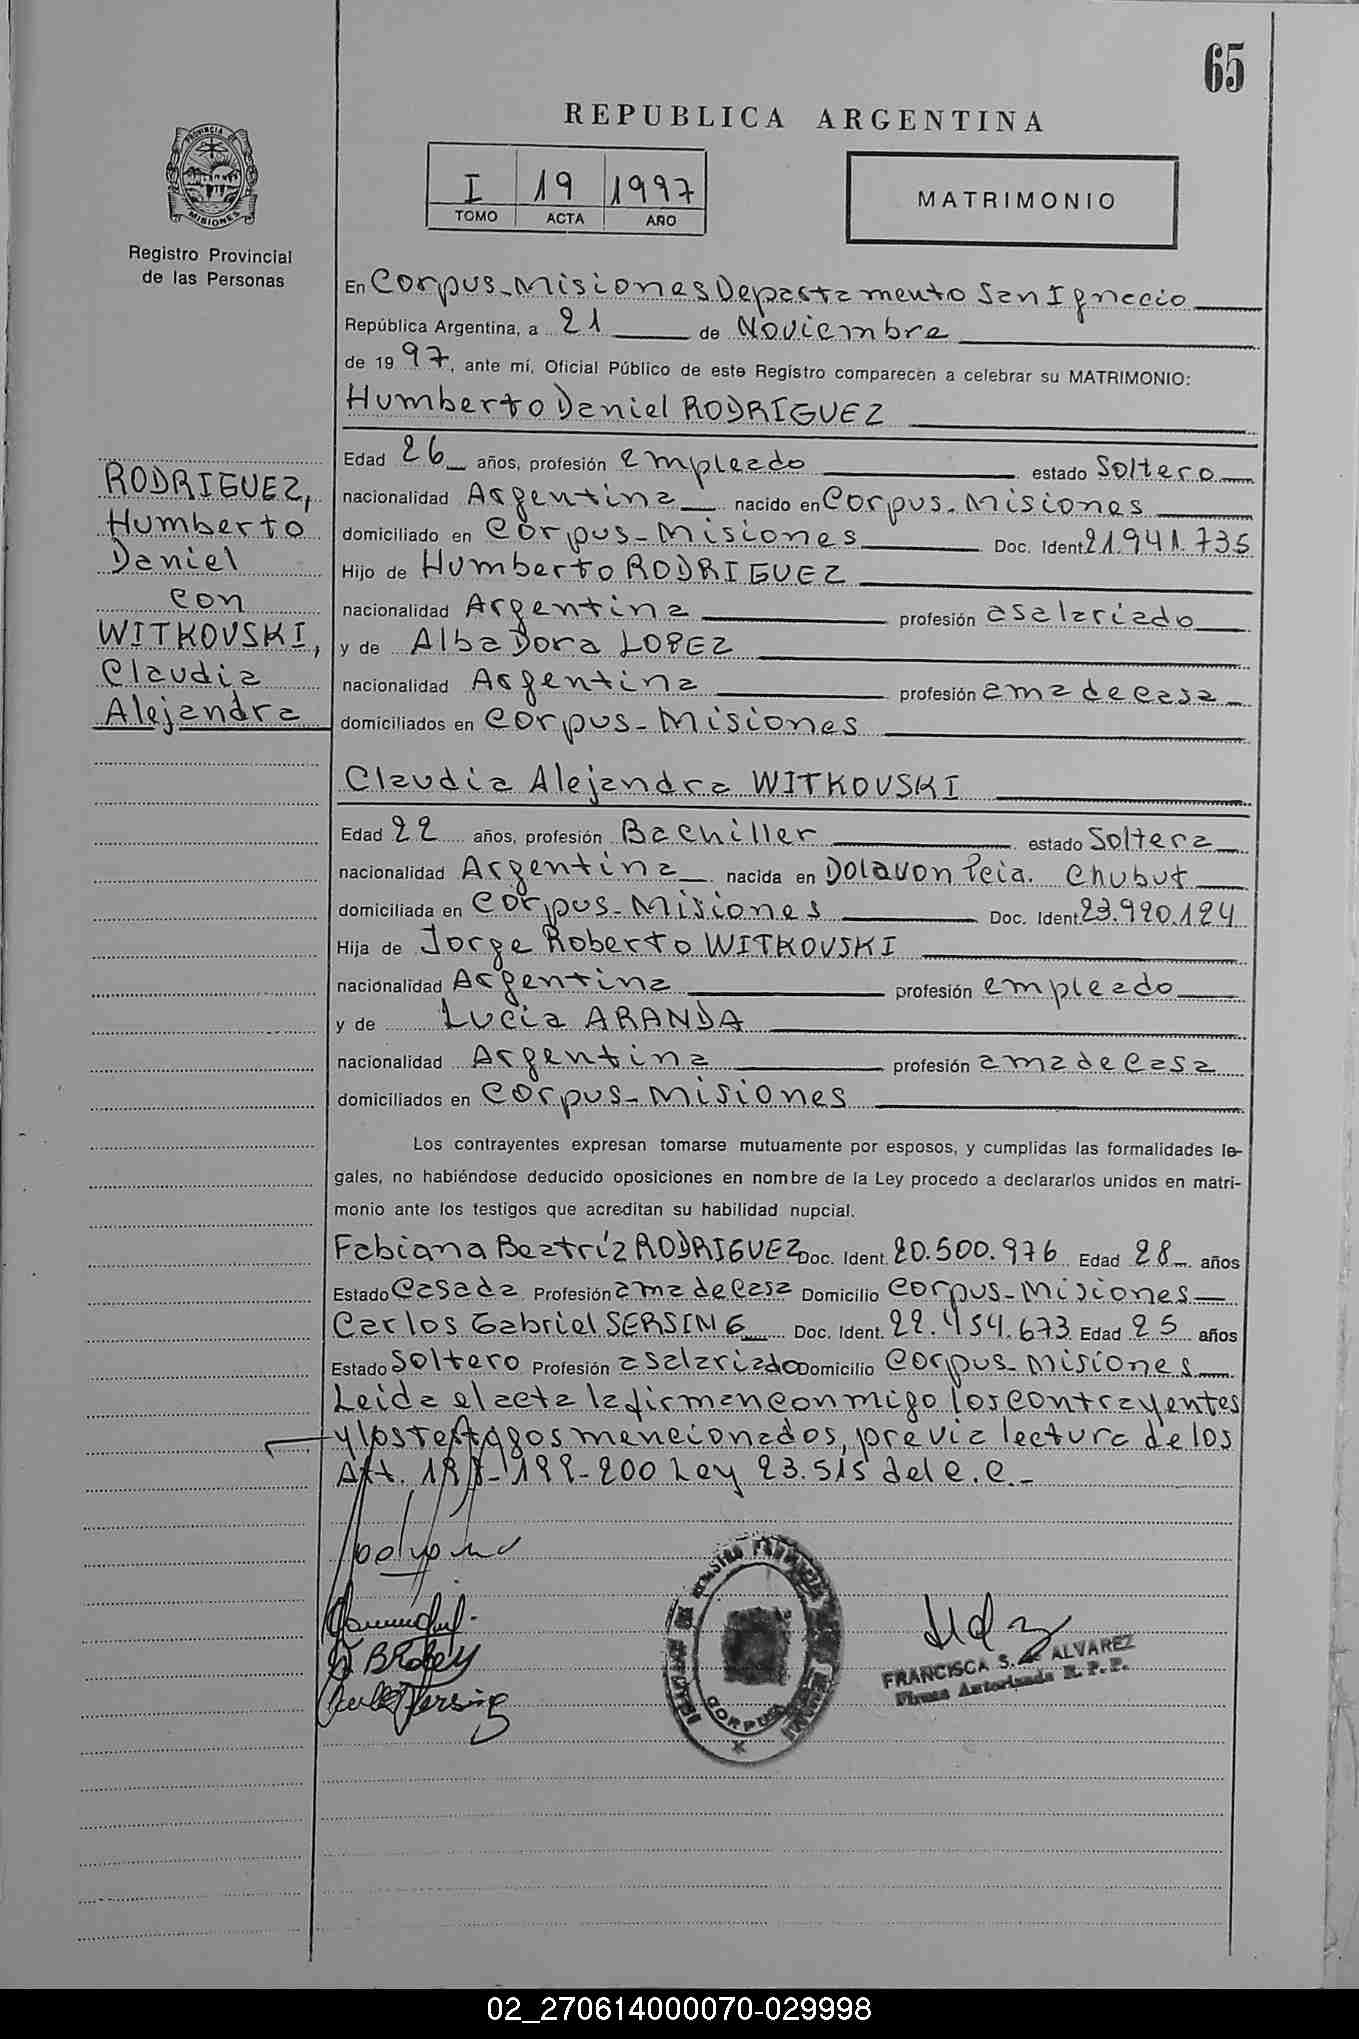 65
REPUBLICA ARGENTINA
PROVINCIA DE
MISIONES
Registro Provincial
de las Personas
I 19 1997
TOMO ACTA AÑO
MATRIMONIO
En Corpus-Misiones Departamento San Ignacio
República Argentina, a 21 de Noviembre
de 1997, ante mí, Oficial Público de este Registro comparecen a celebrar su MATRIMONIO:
Humberto Daniel RODRIGUEZ
Edad 26 años, profesión empleado estado Soltero
nacionalidad Argentina nacido en Corpus-Misiones
domiciliado en Corpus-Misiones Doc. Ident. 21.941.735
Hijo de Humberto RODRIGUEZ
nacionalidad Argentina profesión asalariado
y de Alba Dora LOPEZ
nacionalidad Argentina profesión ama de casa
domiciliados en Corpus-Misiones
RODRIGUEZ,
Humberto
Daniel
con
WITKOVSKI,
Claudia
Alejandra
Claudia Alejandra WITKOVSKI
Edad 22 años, profesión Bachiller estado Soltera
nacionalidad Argentina nacida en Dolavon Pcia. Chubut
domiciliada en Corpus-Misiones Doc. Ident. 23.920.124
Hija de Jorge Roberto WITKOVSKI
nacionalidad Argentina profesión empleado
y de Lucia ARANDA
nacionalidad Argentina profesión ama de casa
domiciliados en Corpus-Misiones
Los contrayentes expresan tomarse mutuamente por esposos, y cumplidas las formalidades le-
gales, no habiéndose deducido oposiciones en nombre de la Ley procedo a declararlos unidos en matri-
monio ante los testigos que acreditan su habilidad nupcial.
Fabiana Beatríz RODRIGUEZ Doc. Ident. 20.500.976 Edad 28 años
Estado Casada Profesión ama de casa Domicilio Corpus-Misiones
Carlos Gabriel SERSING Doc. Ident. 22.454.673 Edad 25 años
Estado Soltero Profesión asalariado Domicilio Corpus-Misiones
Leida el acta la firman conmigo los contrayentes
y los testigos mencionados, previa lectura de los
Art. 198-199-200 Ley 23.515 del C.C.-
CORPUS
FRANCISCA S. de ALVAREZ
Firma Autorizada R. P. P.
02_270614000070-029998